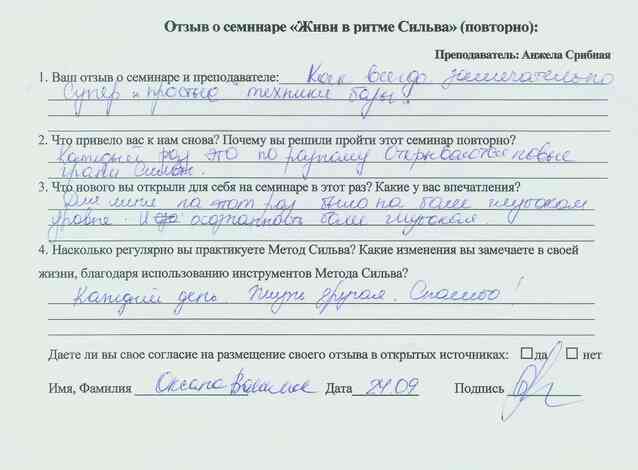 Отзыв о семинаре «Живи в ритме Сильва» (повторно):
Преподаватель: Анжела Срибная
1. Ваш отзыв о семинаре и преподавателе: Как всегда замечательно
Супер и простые техники базы!
2. Что привело вас к нам снова? Почему вы решили пройти этот семинар повторно?
Каждый раз это по разному Открываются новые
грани
3. Что нового вы открыли для себя на семинаре в этот раз? Какие у вас впечатления?
Для меня на этот раз было на более глубоком
уровне. И осознанность более глубокая.
4. Насколько регулярно вы практикуете Метод Сильва? Какие изменения вы замечаете в своей
жизни, благодаря использованию инструментов Метода Сильва?
Каждый день. Жизнь другая. Спасибо!
Даете ли вы свое согласие на размещение своего отзыва в открытых источниках: да нет
Имя, Фамилия Оксана Дата 24.09 Подпись